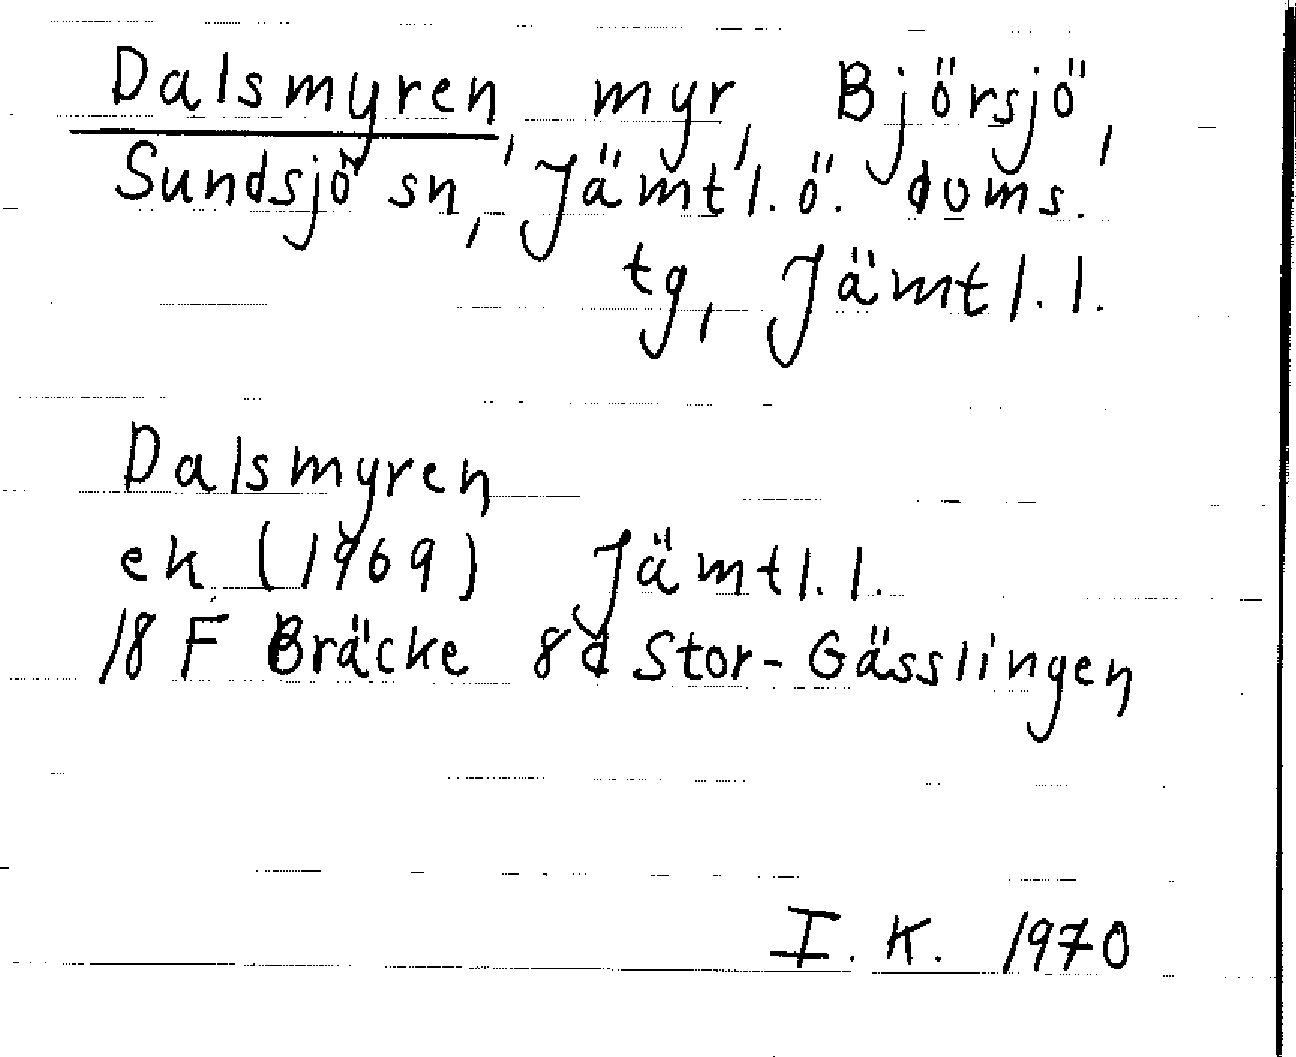 Dalsmyren, myr, Björsjö,
Sundsjö sn, Jämtl. ö. doms.
tg, Jämtl. l.
Dalsmyren
ek (1969) Jämtl. l.
18 F Bräcke 8d Stor-Gässlingen
I. K. 1970